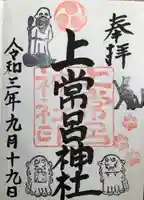 奉拝
上常呂神社
令和三年九月十九日